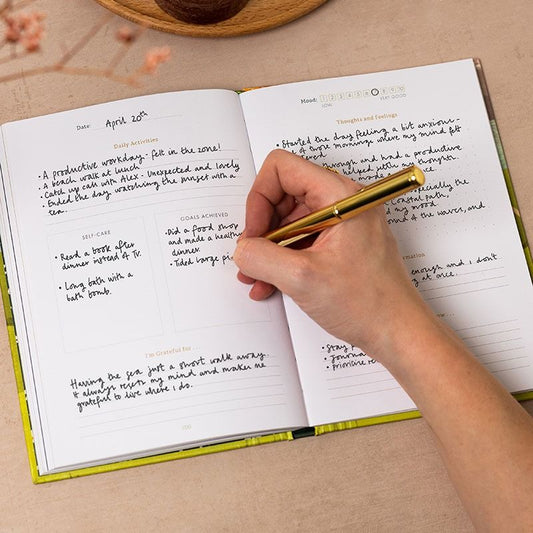 Date: April 20th
Daily Activities
• A productive workday - felt in the zone!
• A beach walk at lunch
• Catch up call with Alex - Unexpected and lovely
• Ended the day watching the sunset with a
tea.
SELF-CARE
• Read a book after
dinner instead of TV.
• Long bath with a
bath bomb.
GOALS ACHIEVED
• Did a food shop
and made a healthy
dinner.
• Tided large
I'm Grateful for...
Having the sea just a short walk away.
It always resets my mind and makes me
grateful to live where I do.
Mood: 1 2 3 4 5 6 7 8 9 10
LOW VERY GOOD
Thoughts and Feelings
• Started the day feeling a bit anxious -
of those mornings where my mind felt
through and had a productive
helped my thoughts
especially the
Coastal path,
my mood.
of the waves, and
enough and I don't
at once.
• Stay
• Journal
• Prioritise